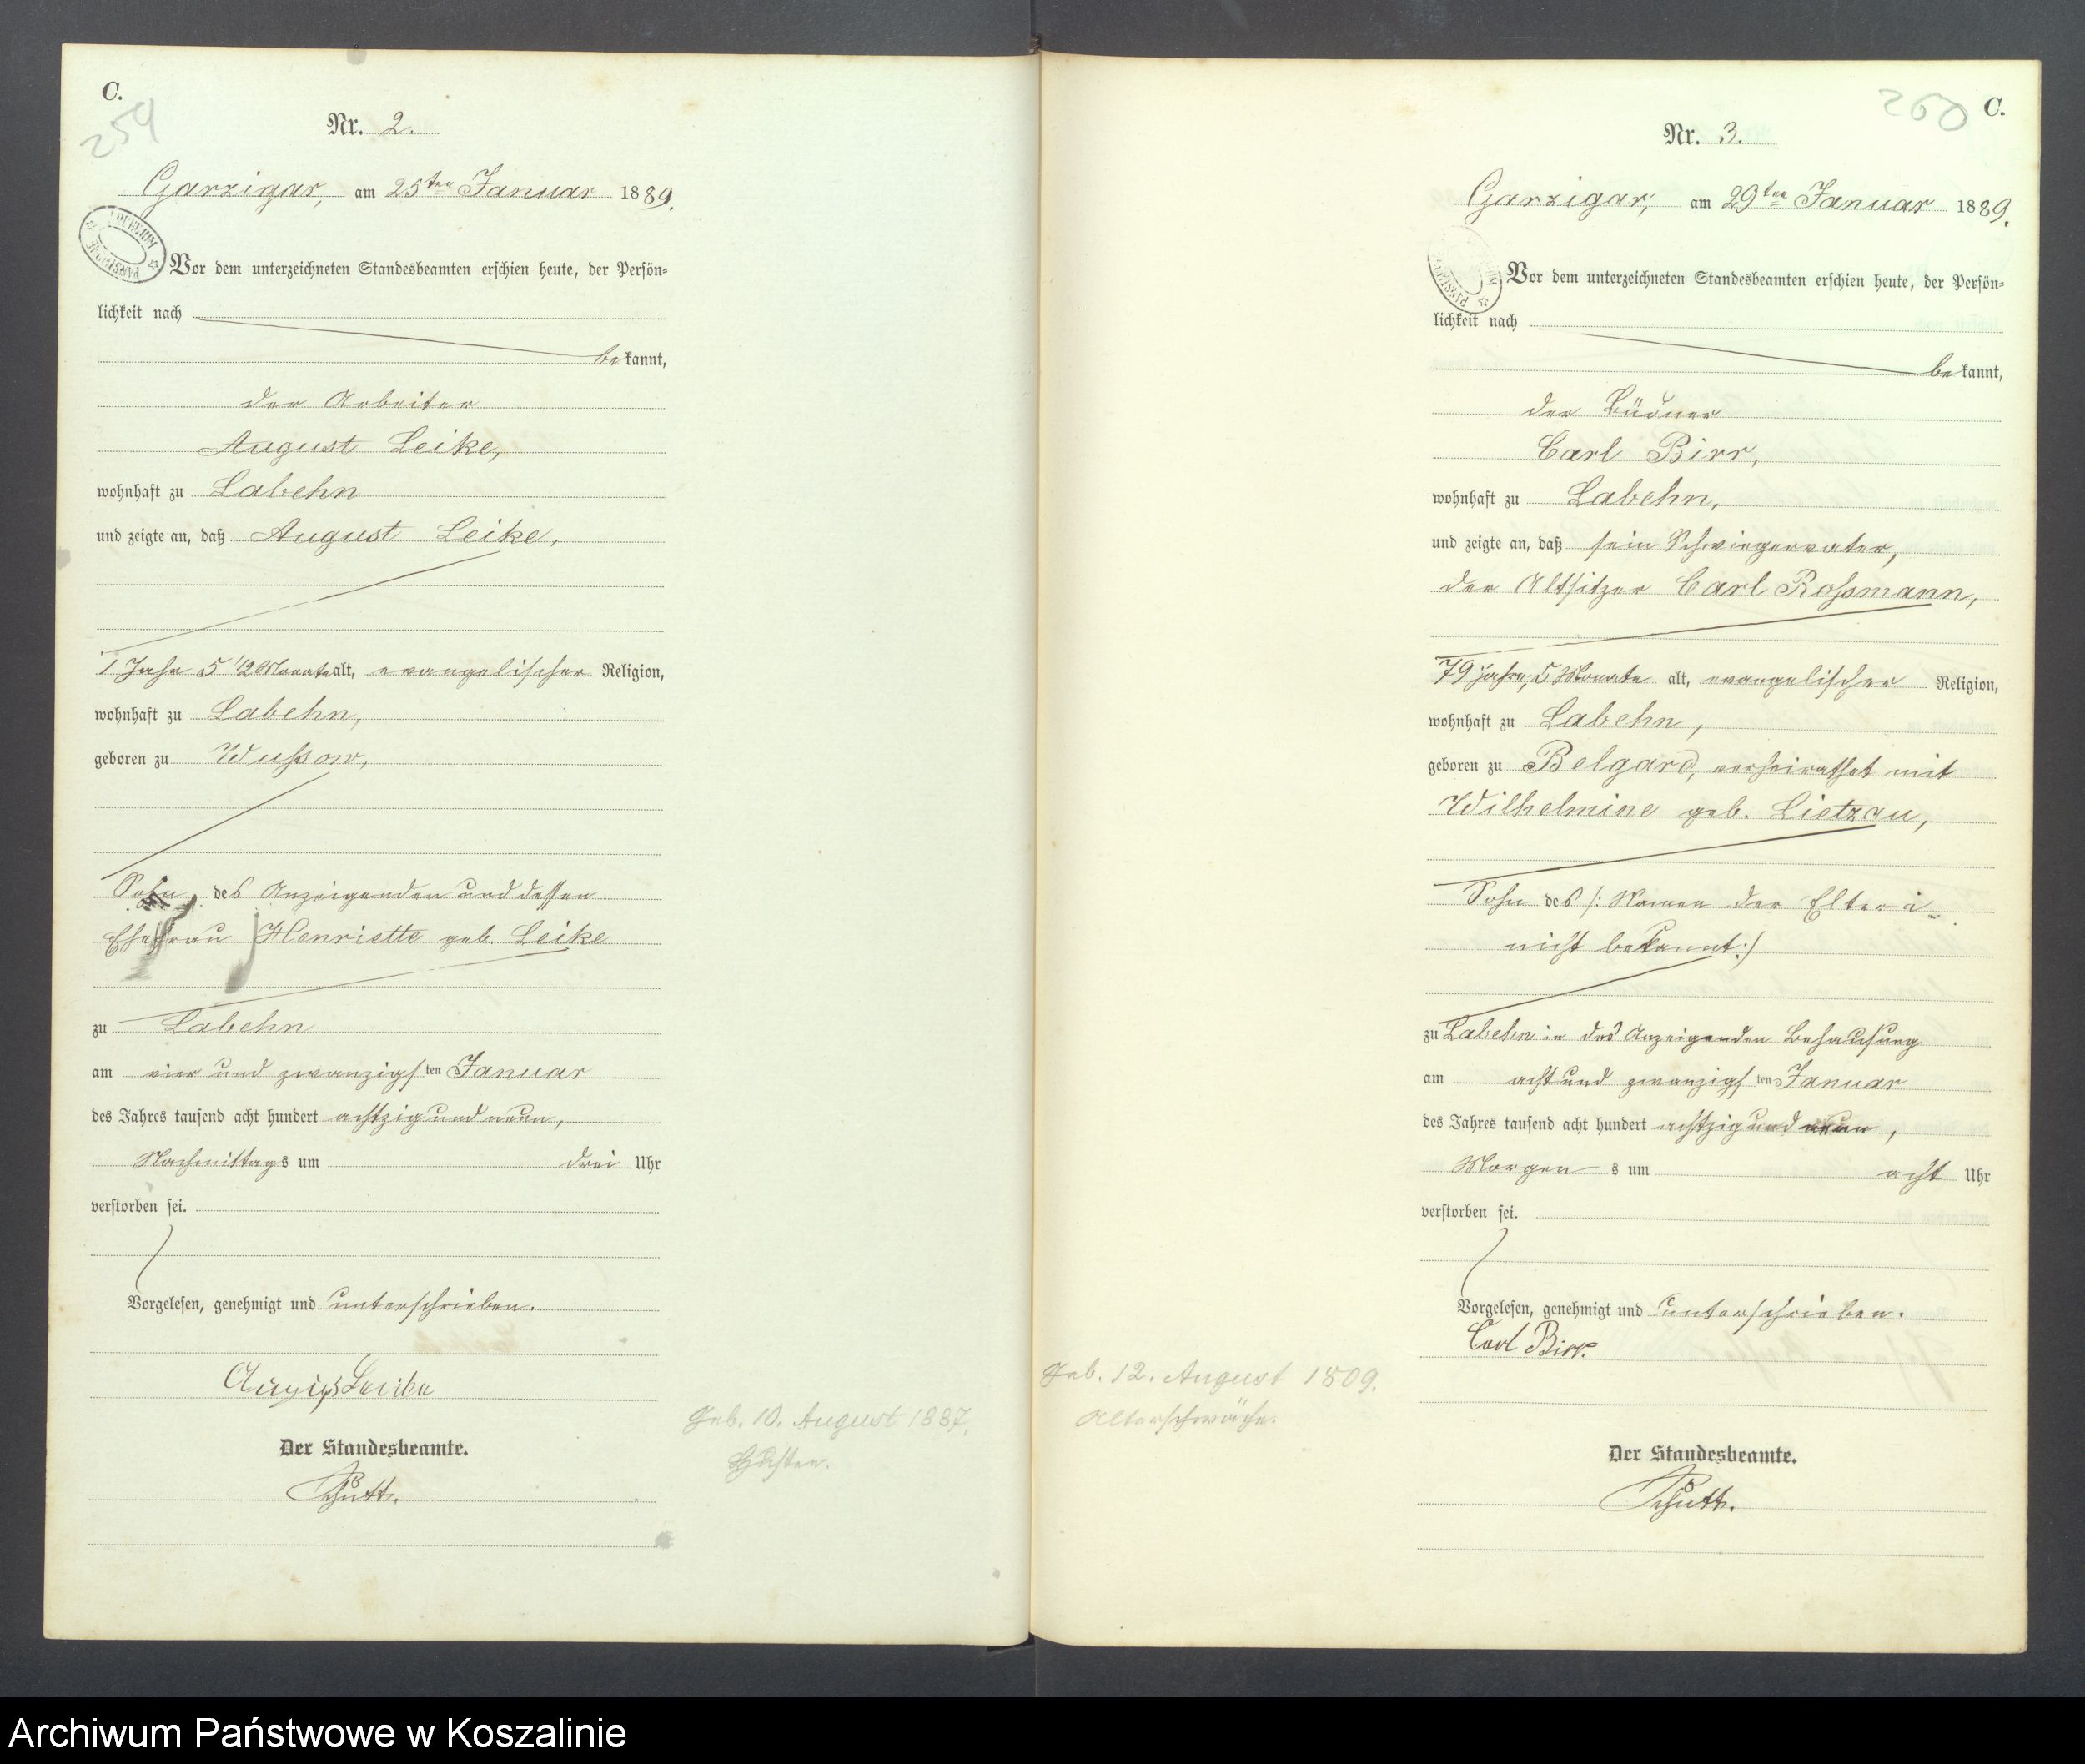 C.
254
Nr. 2.
Garzigar, am 25ten Januar 1889.
Vor dem unterzeichneten Standesbeamten erschien heute, der Persön-
lichkeit nach
bekannt,
der Arbeiter
August Leike,
wohnhaft zu Labehn
und zeigte an, daß August Leike,
1 Jahr 5 1/2 Monate alt, evangelischer Religion,
wohnhaft zu Labehn,
geboren zu Wussow,
Sohn des Anzeigenden und dessen
Ehefrau Henriette geb. Leike
zu Labehn
am vier und zwanzigsten Januar
des Jahres tausend acht hundert achtzig und neun,
Nachmittags um drei Uhr
verstorben sei.
Vorgelesen, genehmigt und unterschrieben.
August Leike
Der Standesbeamte.
Schutt.
Geb. 10. August 1887.
Husten.
260
C.
Nr. 3.
Garzigar, am 29ten Januar 1889.
Vor dem unterzeichneten Standesbeamten erschien heute, der Persön-
lichkeit nach
bekannt,
der Büdner
Carl Birr,
wohnhaft zu Labehn,
und zeigte an, daß sein Schwiegervater,
der Altsitzer Carl Rossmann,
79 Jahre, 5 Monate alt, evangelischer Religion,
wohnhaft zu Labehn,
geboren zu Belgard, verheirathet mit
Wilhelmine geb. Lietzau,
Sohn des /: Namen der Eltern
nicht bekannt :/
zu Labehn in des Anzeigenden Behausung
am acht und zwanzigsten Januar
des Jahres tausend acht hundert achtzig und neun,
Morgens um acht Uhr
verstorben sei.
Vorgelesen, genehmigt und unterschrieben.
Carl Birr.
Geb. 12. August 1809.
Altersschwäche.
Der Standesbeamte.
Schutt.
Archiwum Państwowe w Koszalinie